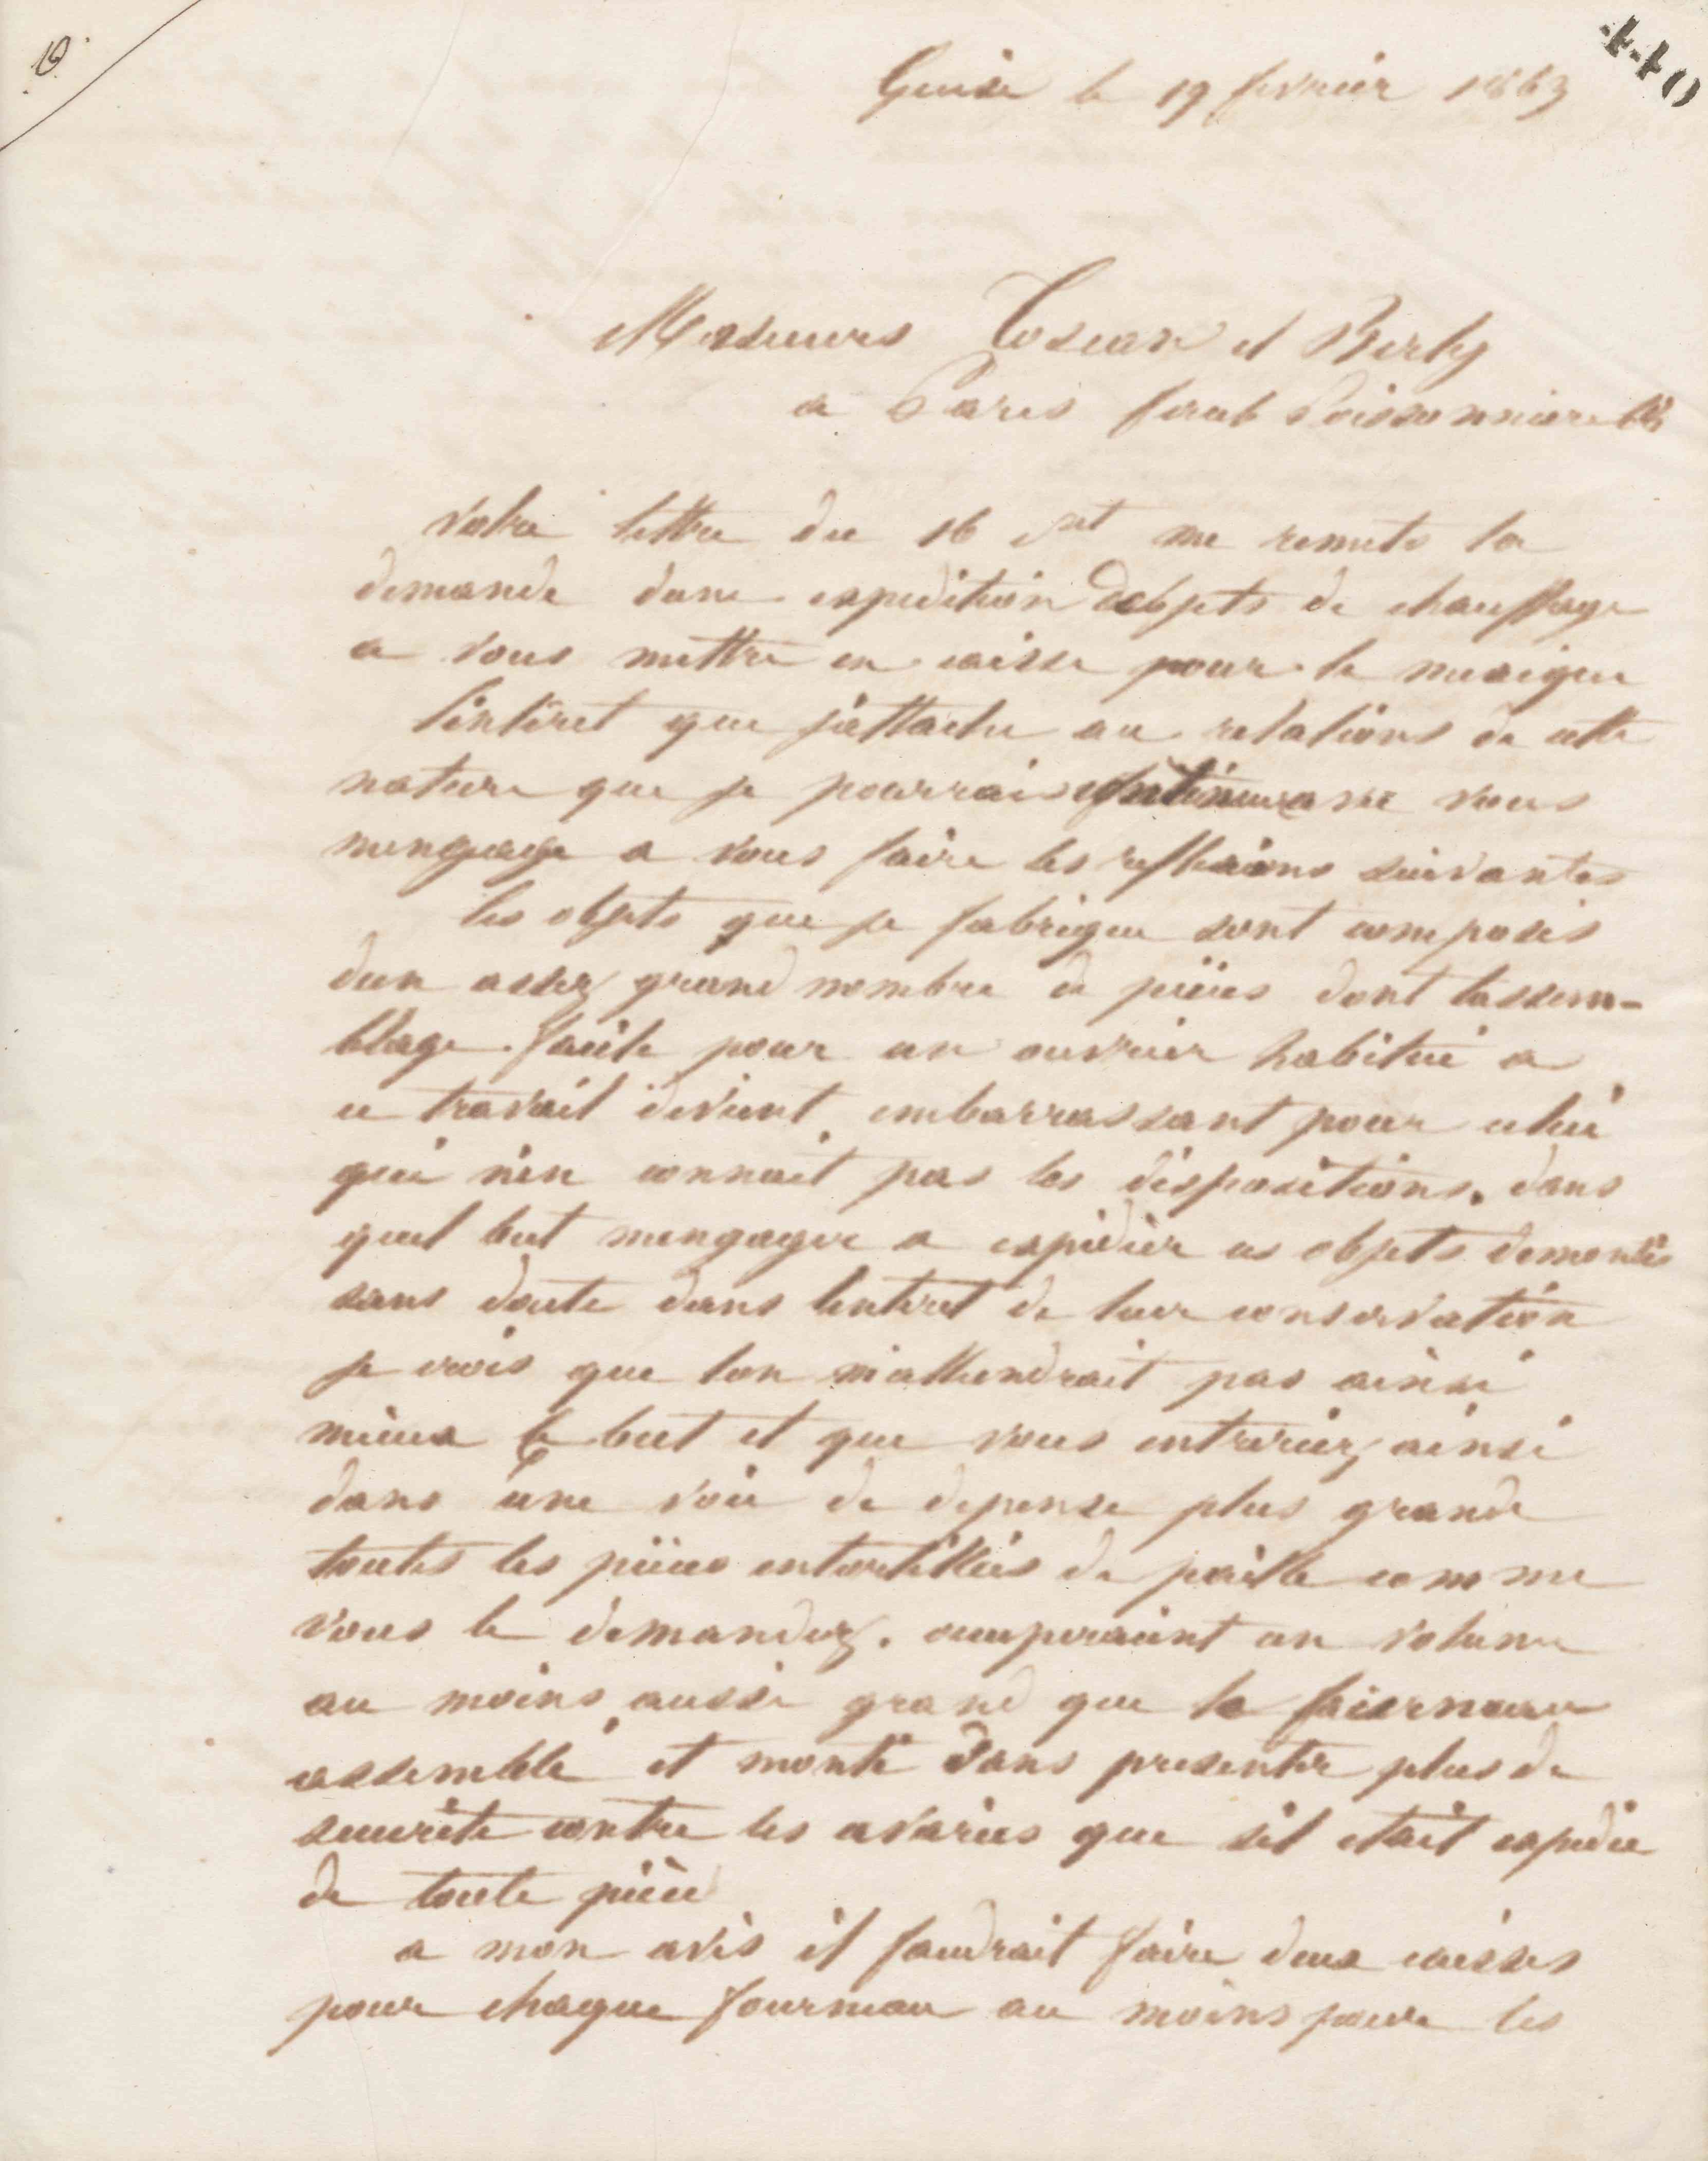 440
Guise le 19 fevrier 1863
Messieurs Toscan et Berly
a Paris faub Poissonniere
votre lettre du 16 ct me remets la
demande dune expedition dobjets de chauffage
a vous mettre en caisse pour le mexique
l'intéret que j'attache au relations de cette
nature que je pourrais continuer avec vous
mengage a vous faire les reflexions suivantes
les objets que je fabrique sont composés
dun assez grand nombre de pièces dont lassem-
blage facile pour un ouvrier habitué a
ce travail devient embarrassant pour celui
qui n'en connait pas les dispositions. dans
quel but mengager a expédier ces objets demontés
sans doute dans lintéret de leur conservation
je crois que lon n'attiendrait pas ainsi
mieux le but et que vous entreriez ainsi
dans une voie de depense plus grande
toutes les pièces entortillées de paille comme
vous le demandez. occuperaient un volume
au moins aussi grand que le fourneau
assemblé et monté sans presenter plus de
securité contre les avaries que s'il etait expedie
de toute pièce
a mon avis il faudrait faire deux caisses
pour chaque fourneau au moins pour les